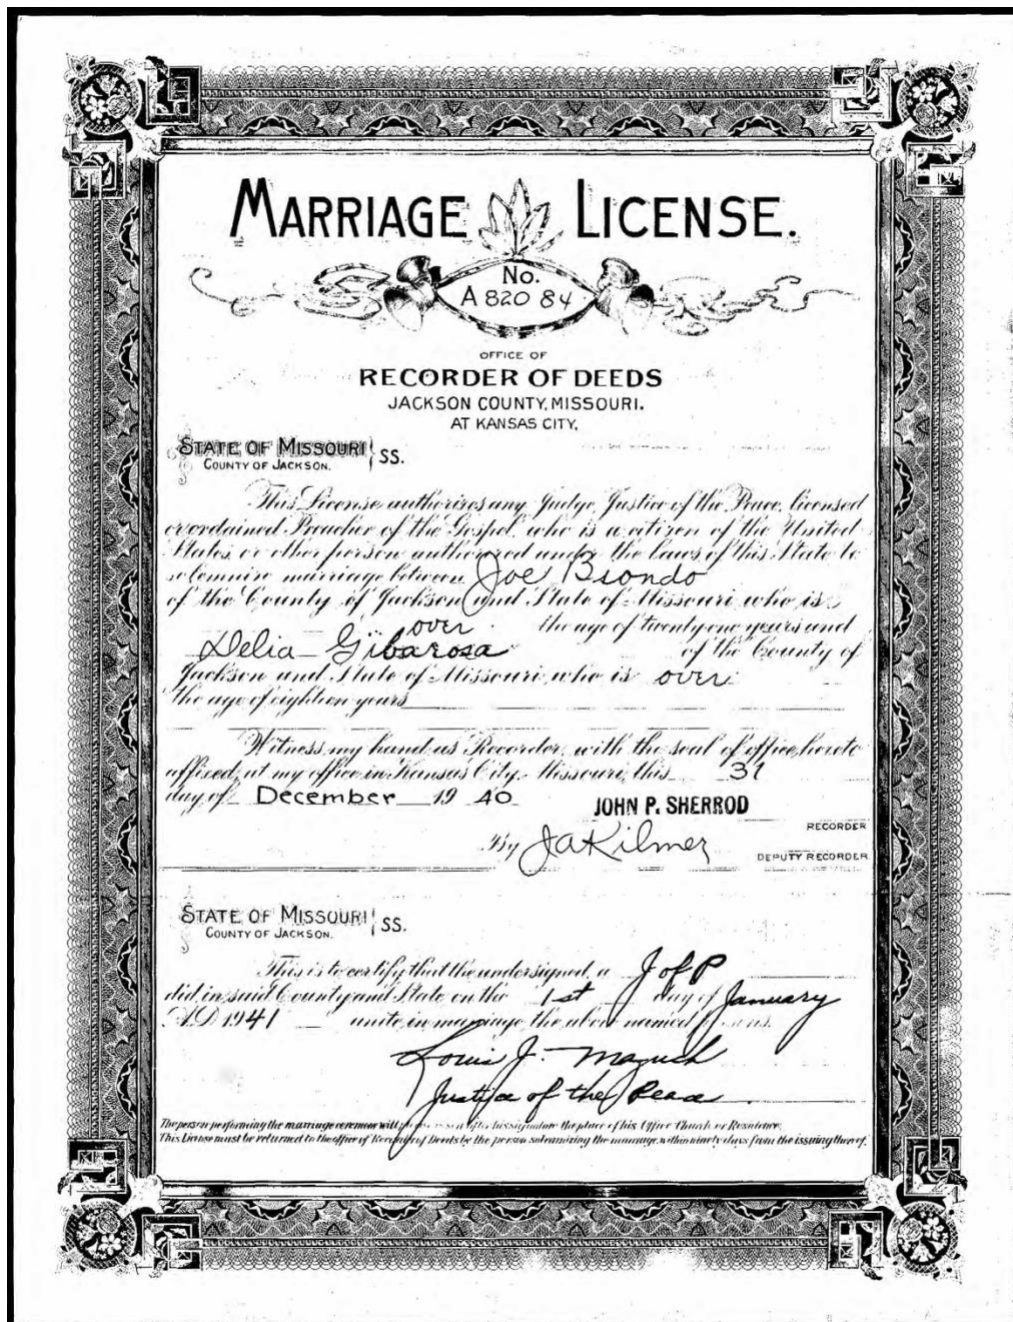 MARRIAGE LICENSE.
No.
A 820 84
OFFICE OF
RECORDER OF DEEDS
JACKSON COUNTY, MISSOURI.
AT KANSAS CITY,
STATE OF MISSOURI
COUNTY OF JACKSON. SS.
This License authorizes any Judge, Justice of the Peace, licensed
or ordained Preacher of the Gospel, who is a citizen of the United
States, or other person authorized under the laws of this State to
solemnize marriage between Joe Biondo
of the County of Jackson and State of Missouri, who is
over the age of twenty one years and
Delia Gibarosa of the County of
Jackson and State of Missouri, who is over
the age of eighteen years
Witness my hand as Recorder, with the seal of office hereto
affixed, at my office in Kansas City, Missouri, this 31
day of December 19 40
JOHN P. SHERROD
RECORDER
By J A Kilmer
DEPUTY RECORDER
STATE OF MISSOURI
COUNTY OF JACKSON. SS.
This is to certify that the undersigned, a J of P
did, in said County and State on the 1st day of January
A.D. 1941 unite in marriage the above named persons.
Louis J.
Justice of the Peace
The person performing the marriage ceremony will after his signature the place of his Office Church or Residence.
This License must be returned to the office of Recorder of Deeds by the person solemnizing the marriage, within ninety days from the issuing thereof.